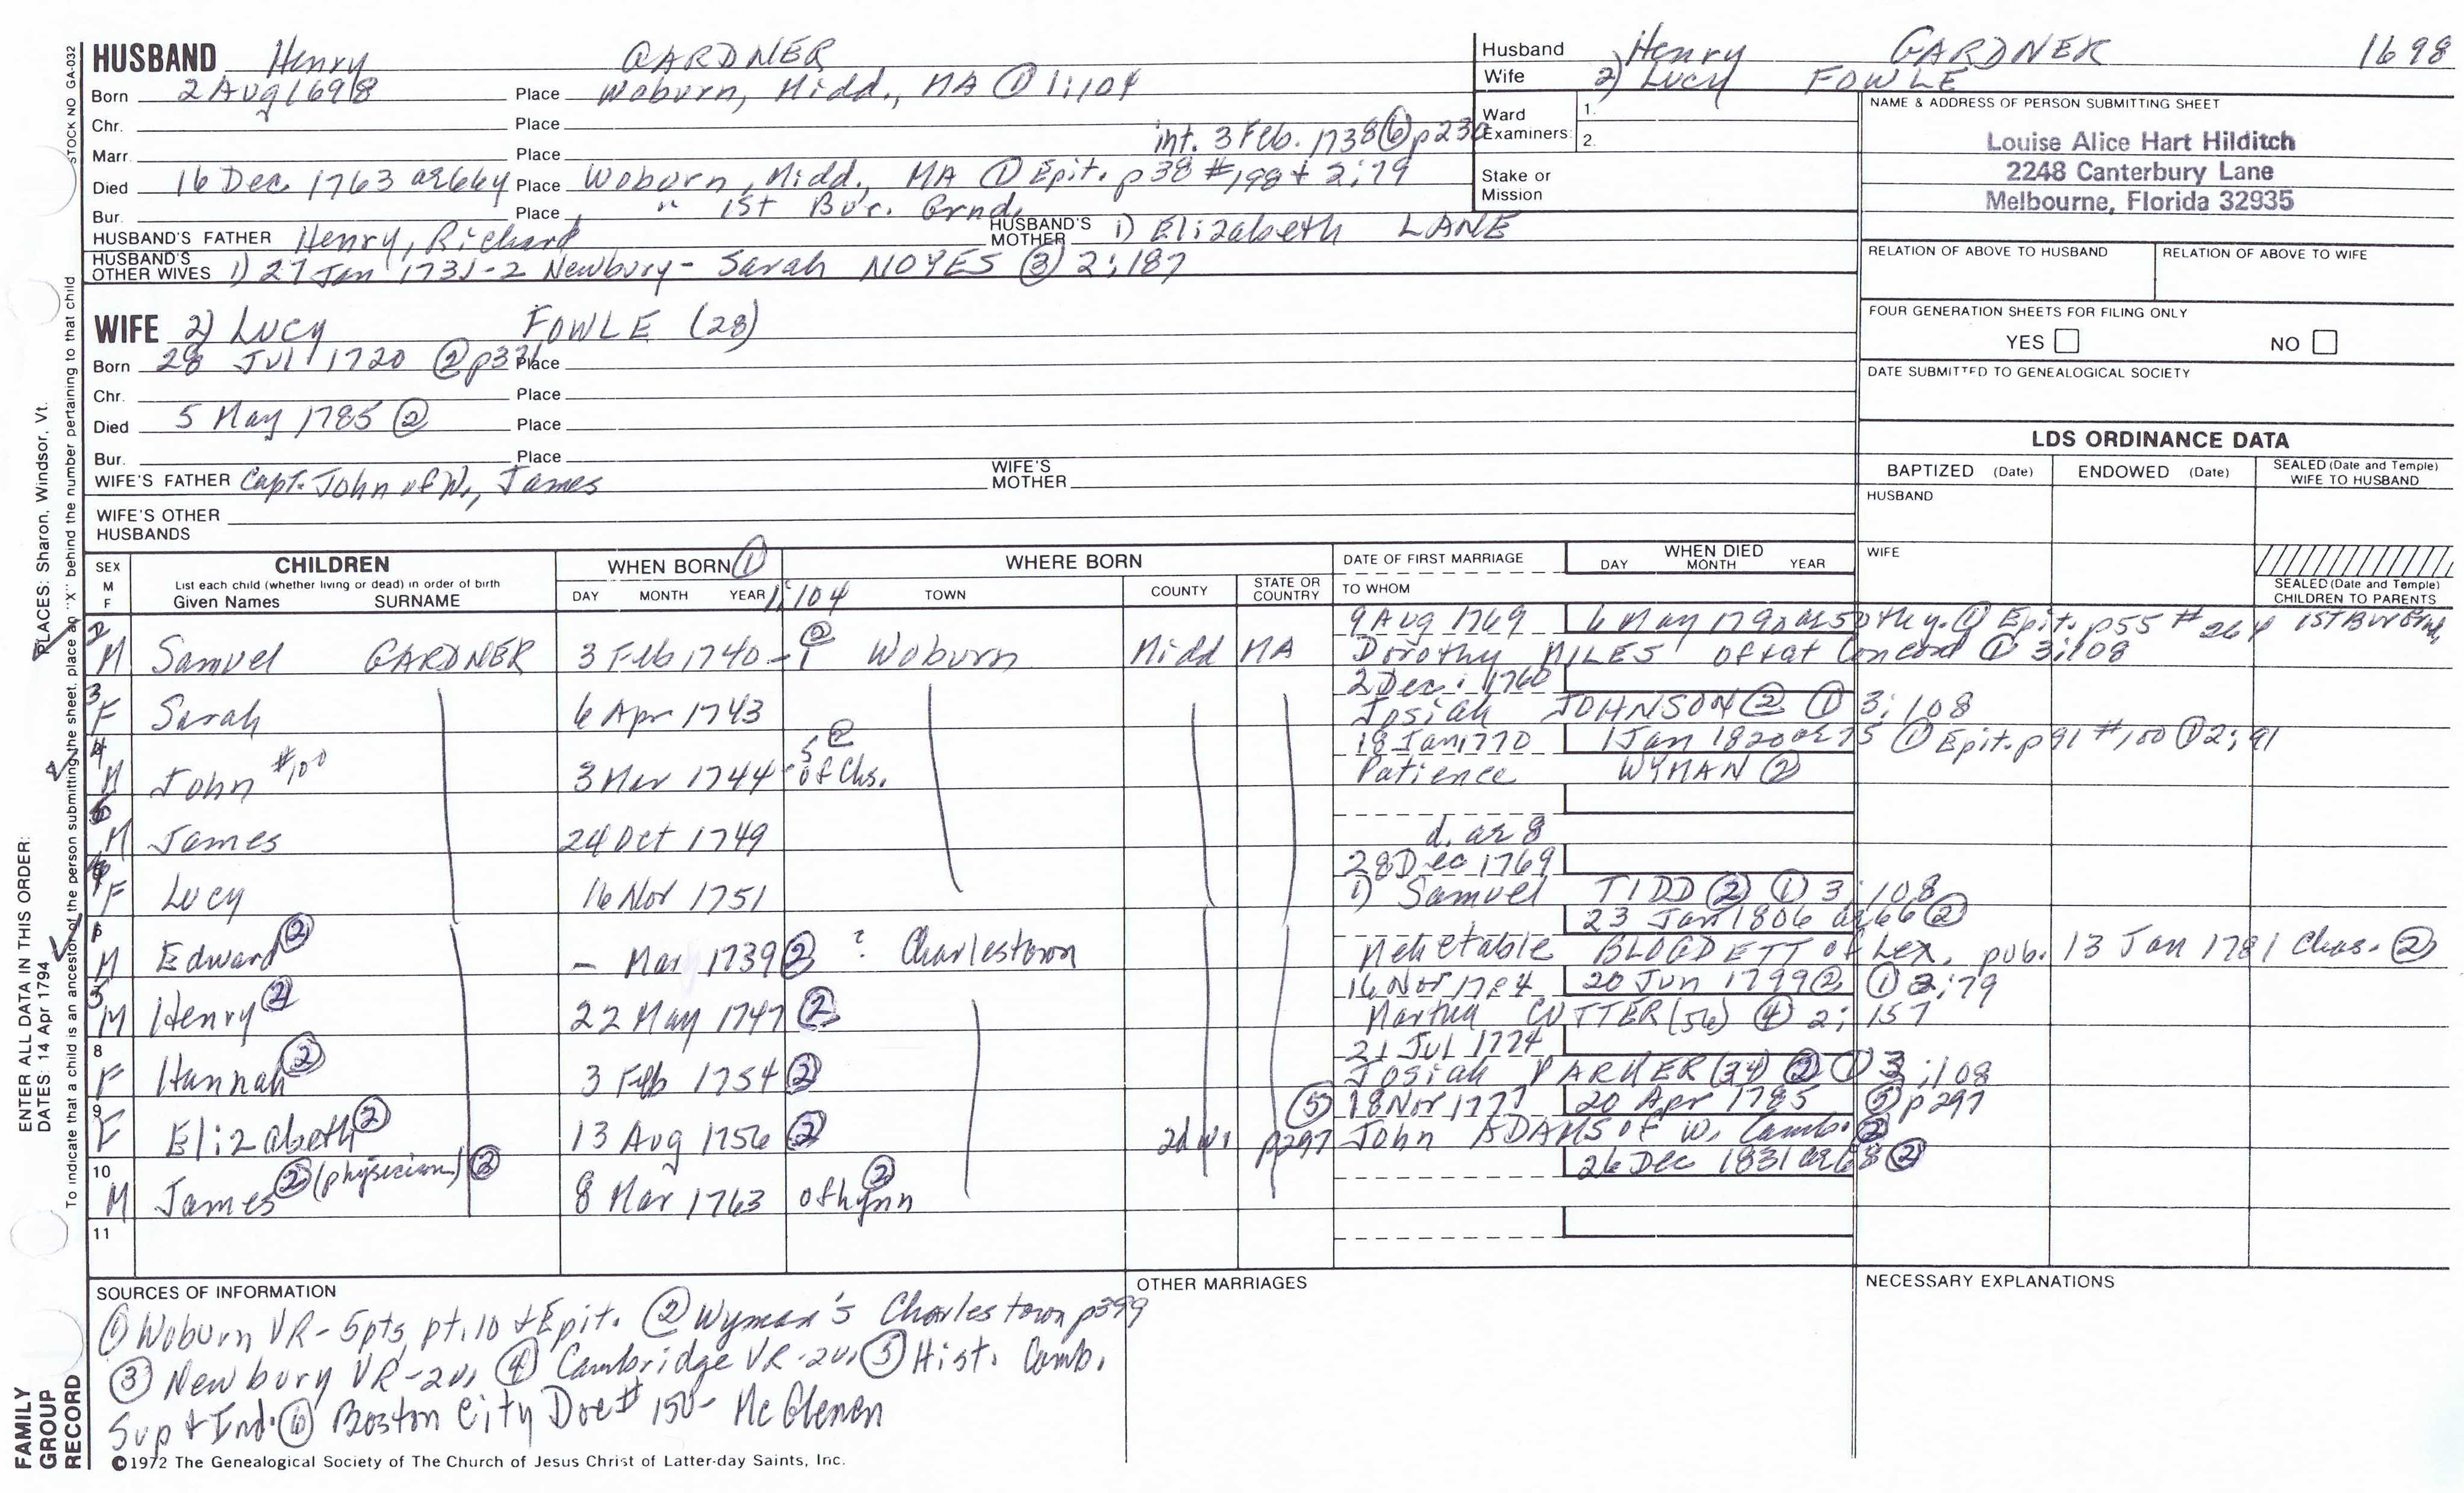 STOCK NO GA-032
HUSBAND Henry GARDNER
Born 2 Aug 1698 Place Woburn, Midd., MA ① 1:104
Chr. Place
Marr. Place int. 3 Feb. 1738 ⑥ p230
Died 16 Dec. 1763 ae 66y Place Woburn, Midd., MA ① Epit. p38 #198 + 2:79
Bur. Place " 1st Bur. Grnd.
HUSBAND'S FATHER Henry, Richard HUSBAND'S MOTHER 1) Elizabeth LANE
HUSBAND'S OTHER WIVES 1) 27 Jan 1731-2 Newbury - Sarah NOYES ③ 2:187
WIFE 2) Lucy FOWLE (28)
Born 28 Jul 1720 ② Place
Chr. Place
Died 5 May 1785 ② Place
Bur. Place
WIFE'S FATHER Capt. John of W., James WIFE'S MOTHER
WIFE'S OTHER HUSBANDS
Husband Henry GARDNER 1698
Wife 2) Lucy FOWLE
Ward Examiners: 1.
2.
Stake or Mission
NAME & ADDRESS OF PERSON SUBMITTING SHEET
Louise Alice Hart Hilditch
2248 Canterbury Lane
Melbourne, Florida 32935
RELATION OF ABOVE TO HUSBAND RELATION OF ABOVE TO WIFE
FOUR GENERATION SHEETS FOR FILING ONLY
YES NO
DATE SUBMITTED TO GENEALOGICAL SOCIETY
LDS ORDINANCE DATA
BAPTIZED (Date) ENDOWED (Date) SEALED (Date and Temple) WIFE TO HUSBAND
HUSBAND
WIFE
SEALED (Date and Temple) CHILDREN TO PARENTS
SEX M F CHILDREN WHEN BORN ① WHERE BORN DATE OF FIRST MARRIAGE WHEN DIED
List each child (whether living or dead) in order of birth
Given Names SURNAME DAY MONTH YEAR 1:104 TOWN COUNTY STATE OR COUNTRY TO WHOM DAY MONTH YEAR
9 Aug 1769 6 May ① Epit. p55 #264 1st Bur Grnd,
2 M Samuel GARDNER 3 Feb 1740-1 ② Woburn Midd MA Dorothy MILES of Concord ① 3:108
2 Dec. 1760
3 F Sarah 6 Apr 1743 Josiah JOHNSON ② ① 3:108
18 Jan 1770 1 Jan 1820 ae 75 ① Epit. p91 #100 ① 2:91
4 M John #100 3 Mar 1744-5 ② of Chs. Patience WYMAN ②
6 M James 24 Oct 1749 d. ae 8
28 Dec 1769
F Lucy 16 Nov 1751 1) Samuel TIDD ② ① 3:108
23 Jan 1806 ae 66 ②
1 M Edward ② - Mar 1739 ② ? Charlestown Mehetable BLOGDETT of Lex. pub. 13 Jan 1781 Chas. ②
16 Nov 20 Jun 1799 ② ① 2:79
5 M Henry ② 22 May 1747 ② Martha CUTTER (56) ④ 2:157
21 Jul 1774
8 F Hannah ② 3 Feb 1754 ② Josiah PARKER (34) ② ① 3:108
⑤ 18 Nov 1777 20 Apr 1785 ⑤ p297
9 F Elizabeth ② 13 Aug 1756 ② 2d w. p297 John ADAMS of W. Camb. ②
26 Dec 1831 ae 68 ②
10 M James ② (physician) ② 8 Mar 1763 of Lynn ②
11
SOURCES OF INFORMATION
① Woburn VR - 5pts, pt. 10 + Epit. ② Wyman's Charlestown p399
③ Newbury VR - 2v, ④ Cambridge VR - 2v, ⑤ Hist. Camb.
Sup + Ind. ⑥ Boston City Doc # 150 - McGlenen
OTHER MARRIAGES
NECESSARY EXPLANATIONS
©1972 The Genealogical Society of The Church of Jesus Christ of Latter-day Saints, Inc.
FAMILY GROUP RECORD
ENTER ALL DATA IN THIS ORDER:
DATES: 14 Apr 1794
PLACES: Sharon, Windsor, Vt.
To indicate that a child is an ancestor of the person submitting the sheet, place an "X" behind the number pertaining to that child